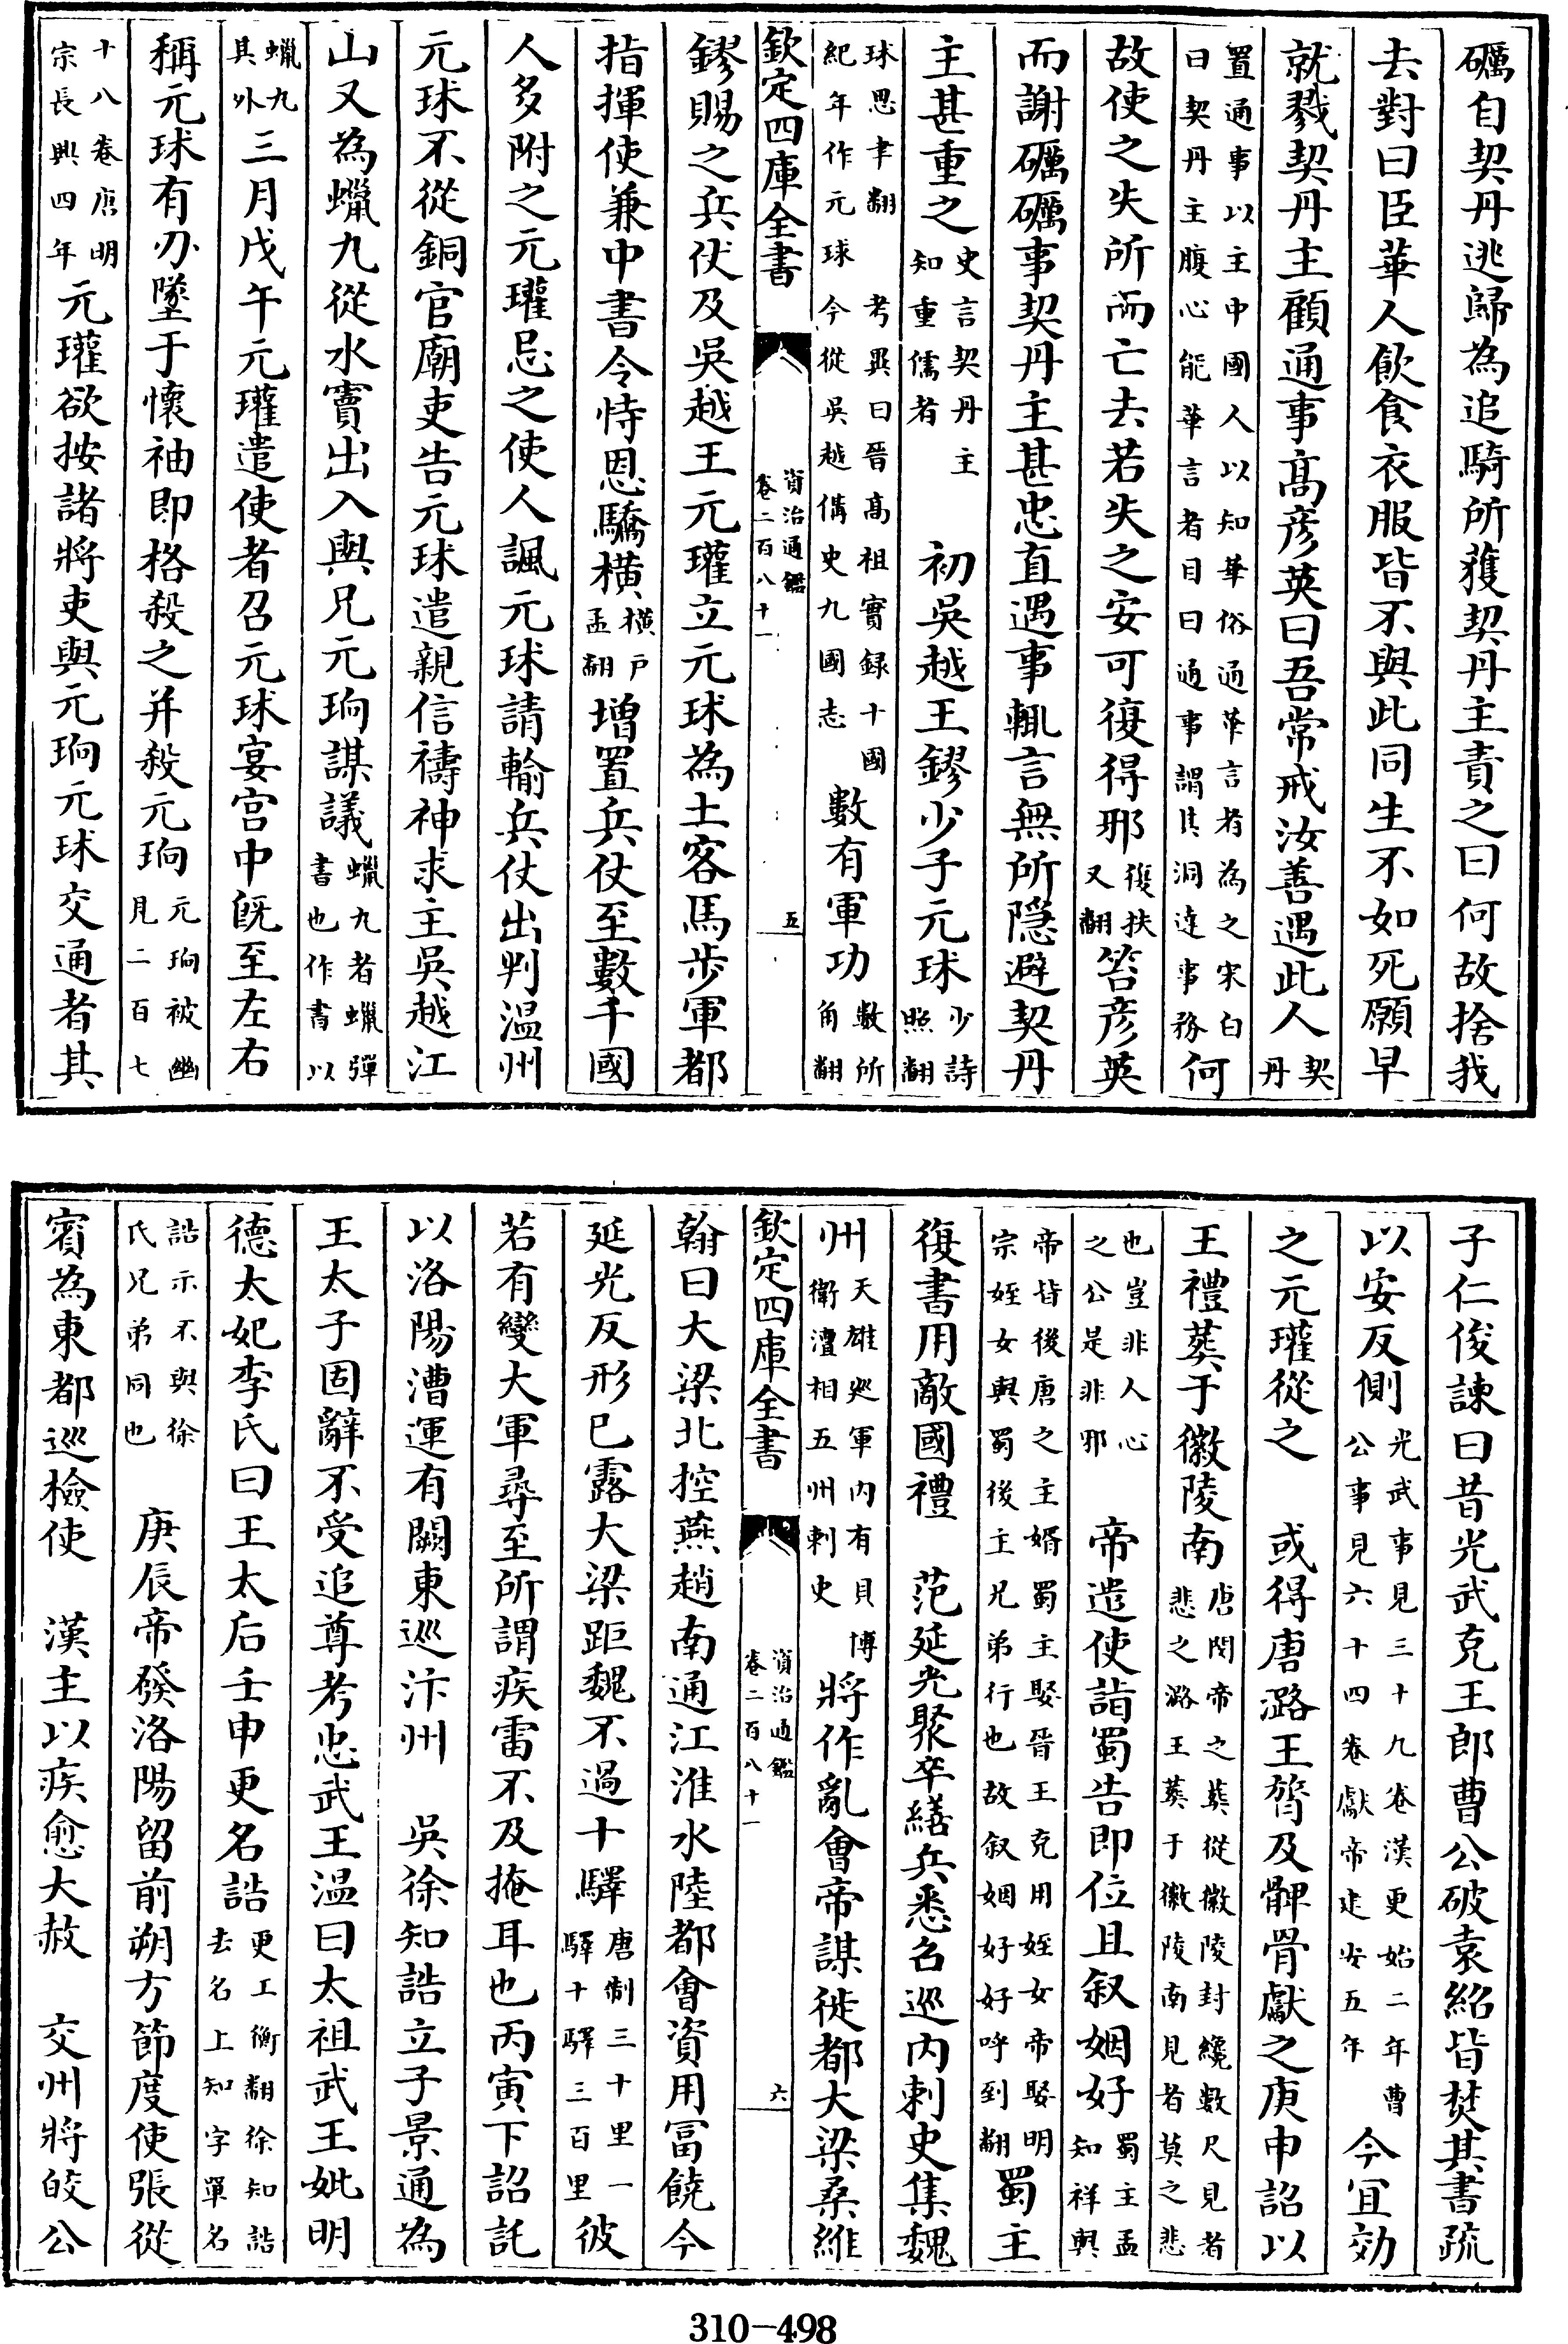 礪自契丹逃歸為追騎所獲契丹主責之曰何故捨我
去對曰臣華人飲食衣服皆不與此同生不如死願早
就戮契丹主顧通事高彦英曰吾常戒汝善遇此人契丹
置通事以主中國人以知華俗通華言者為之宋白曰契丹主腹心能華言者目曰通事謂其洞達事務何
故使之失所而亡去若失之安可復得邪復扶又翻笞彦英
而謝礪礪事契丹主甚忠直遇事輒言無所隱避契丹
主甚重之史言契丹主知重儒者 初吳越王鏐少子元球少詩照翻
球思聿翻 考異曰晉高祖實録十國紀年作元球今從吳越備史九國志數有軍功數所角翻
欽定四庫全書 資治通鑑卷二百八十一 五
鏐賜之兵仗及吳越王元瓘立元球為土客馬步軍都
指揮使兼中書令恃恩驕横横戸孟翻增置兵仗至數千國
人多附之元瓘忌之使人諷元球請輸兵仗出判温州
元球不從銅官廟吏告元球遣親信禱神求主吳越江
山又為蠟九從水竇出入與兄元珦謀議蠟九者蠟彈書也作書以
蠟九其外三月戊午元瓘遣使者召元球宴宮中既至左右
稱元球有刃墜于懐袖即格殺之并殺元珦元珦被幽見二百七
十八卷唐明宗長興四年元瓘欲按諸將吏與元珦元球交通者其
子仁俊諫曰昔光武克王郎曹公破袁紹皆焚其書疏
以安反側光武事見三十九卷漢更始二年曹公事見六十四卷獻帝建安五年今宜効
之元瓘從之 或得唐潞王膂及髀骨獻之庚申詔以
王禮葬于徽陵南唐閔帝之葬從徽陵封纔數尺見者悲之潞王葬于徽陵南見者莫之悲
也豈非人心之公是非邪 帝遣使詣蜀告即位且叙姻好蜀主孟知祥與
帝皆後唐之主婿蜀主娶晉王克用姪女帝娶明宗姪女與蜀後主兄弟行也故叙姻好好呼到翻蜀主
復書用敵國禮 范延光聚卒繕兵悉名巡内刺史集魏
州天雄巡軍内有貝博衛澶相五州刺史將作亂會帝謀徙都大梁桑維
欽定四庫全書 資治通鑑卷二百八十一 六
翰曰大梁北控燕趙南通江淮水陸都會資用富饒今
延光反形已露大梁距魏不過十驛唐制三十里一驛十驛三百里彼
若有變大軍尋至所謂疾雷不及掩耳也丙寅下詔託
以洛陽漕運有闕東巡汴州 吳徐知誥立子景通為
王太子固辭不受追尊考忠武王温曰太祖武王妣明
德太妃李氏曰王太后壬申更名誥更工衡翻徐知誥去名上知字單名
誥示不與徐氏兄弟同也 庚辰帝發洛陽留前朔方節度使張從
賓為東都巡檢使 漢主以疾愈大赦 交州將皎公
310-498